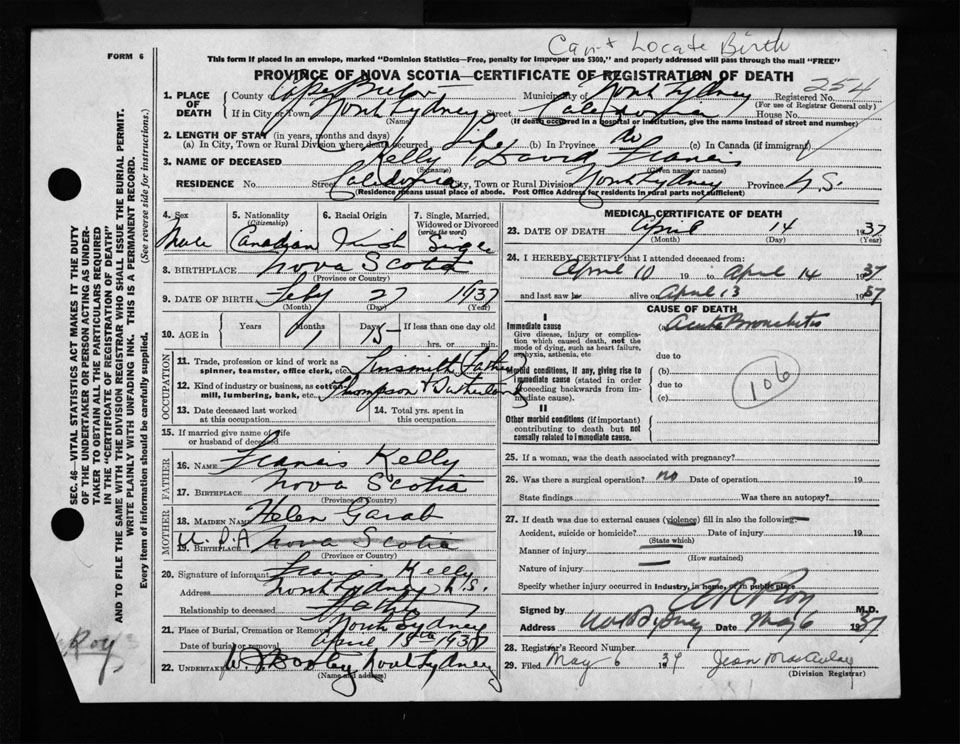 Can't Locate Birth
FORM 6
This form if placed in an envelope, marked "Dominion Statistics—Free, penalty for improper use $300," and properly addressed will pass through the mail "FREE"
PROVINCE OF NOVA SCOTIA—CERTIFICATE OF REGISTRATION OF DEATH
254
1. PLACE OF DEATH
County Cape Breton Municipality of North Sydney Registered No.
(For use of Registrar General only)
If in City or Town North Sydney Street Caledonia House No.
(Name) (If death occurred in a hospital or institution, give the name instead of street and number)
2. LENGTH OF STAY (in years, months and days)
(a) In City, Town or Rural Division where death occurred Life (b) In Province do (c) In Canada (if immigrant)
3. NAME OF DECEASED Kelly David Francis
(Surname) (Given name or names)
RESIDENCE No. Street Caledonia City, Town or Rural Division North Sydney Province N.S.
(Residence means usual place of abode. Post Office Address for residents in rural parts not sufficient)
4. Sex Male
5. Nationality (Citizenship) Canadian
6. Racial Origin Irish
7. Single, Married, Widowed or Divorced (write the word) Single
8. BIRTHPLACE Nova Scotia
(Province or Country)
9. DATE OF BIRTH Feby 27 1937
(Month) (Day) (Year)
10. AGE in Years Months Days If less than one day old
1 15 hrs. or min.
OCCUPATION
11. Trade, profession or kind of work as spinner, teamster, office clerk, etc. Tinsmith (Father)
12. Kind of industry or business, as cotton mill, lumbering, bank, etc. Thompson & Sutherland
13. Date deceased last worked at this occupation
14. Total yrs. spent in this occupation
15. If married give name of wife or husband of deceased
FATHER
16. NAME Francis Kelly
17. BIRTHPLACE Nova Scotia
(Province or Country)
MOTHER
18. MAIDEN NAME Helen Garab
U.S.A
19. BIRTHPLACE Nova Scotia
(Province or Country)
20. Signature of informant Francis Kelly
Address North Sydney N.S.
Relationship to deceased Father
21. Place of Burial, Cremation or Removal North Sydney
Date of burial or removal April 15th 1937
22. UNDERTAKER North Sydney
(Name and address)
MEDICAL CERTIFICATE OF DEATH
23. DATE OF DEATH April 14 1937
(Month) (Day) (Year)
24. I HEREBY CERTIFY that I attended deceased from:
April 10 19 to April 14 1937
and last saw h alive on April 13 1937
CAUSE OF DEATH
I
Immediate cause (a) Acute Bronchitis
Give disease, injury, or complication which caused death, not the mode of dying, such as heart failure, asphyxia, asthenia, etc
due to
Morbid conditions, if any, giving rise to immediate cause (stated in order proceeding backwards from immediate cause).
(b)
due to
(c)
106
II
Other morbid conditions (if important) contributing to death but not causally related to immediate cause.
25. If a woman, was the death associated with pregnancy?
26. Was there a surgical operation? no Date of operation 19
State findings Was there an autopsy?
27. If death was due to external causes (violence) fill in also the following:—
Accident, suicide or homicide? Date of injury 19
(State which)
Manner of injury
(How sustained)
Nature of injury
Specify whether injury occurred in Industry, in home, or in public place
Signed by M.D.
Address No Sydney Date May 6 1937
28. Registrar's Record Number
29. Filed May 6 1937 Jean MacAulay
(Division Registrar)
SEC. 46—VITAL STATISTICS ACT MAKES IT THE DUTY
OF THE UNDERTAKER OR PERSON ACTING AS UNDER-
TAKER TO OBTAIN ALL THE PARTICULARS REQUIRED
IN THE "CERTIFICATE OF REGISTRATION OF DEATH"
AND TO FILE THE SAME WITH THE DIVISION REGISTRAR WHO SHALL ISSUE THE BURIAL PERMIT.
WRITE PLAINLY WITH UNFADING INK. THIS IS A PERMANENT RECORD.
Every item of information should be carefully supplied. (See reverse side for instructions.)
Roy